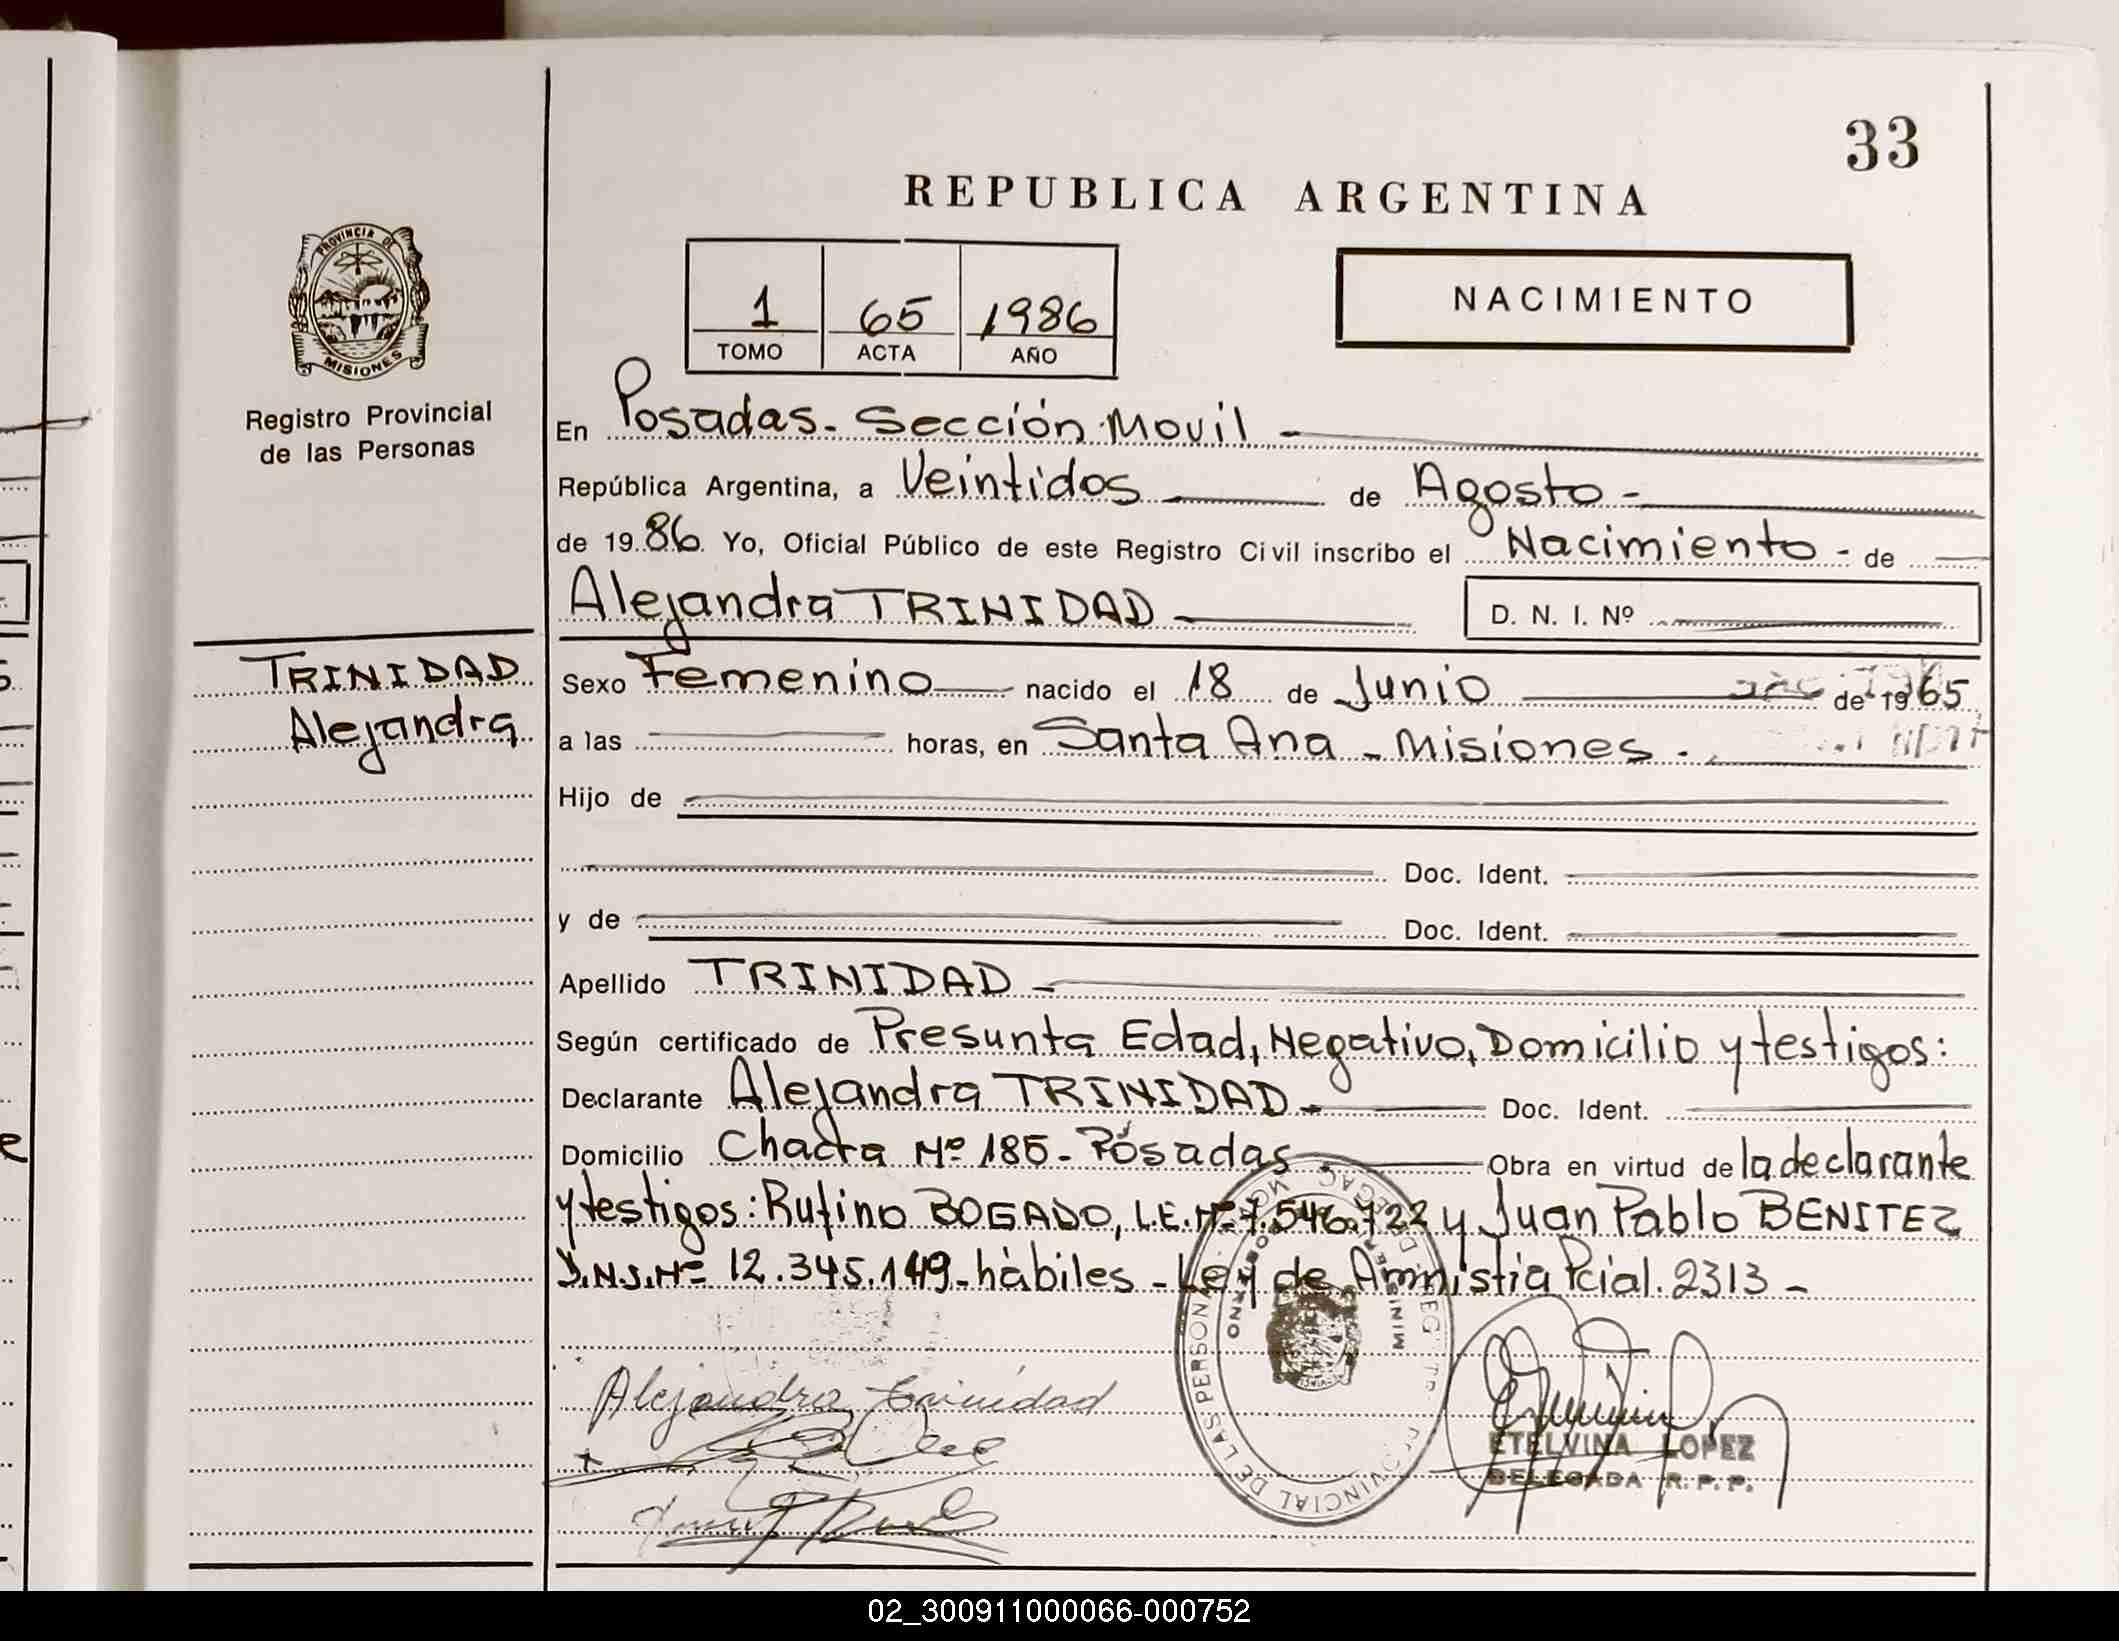 33
REPUBLICA ARGENTINA
PROVINCIA DE
MISIONES
Registro Provincial
de las Personas
1 65 1986
TOMO ACTA AÑO
NACIMIENTO
En Posadas - Sección Movil -
República Argentina, a Veintidos de Agosto -
de 1986 Yo, Oficial Público de este Registro Civil inscribo el Nacimiento - de
Alejandra TRINIDAD
D. N. I. Nº
TRINIDAD
Alejandra
Sexo Femenino nacido el 18 de Junio de 1965
a las horas, en Santa Ana - Misiones -
Hijo de
Doc. Ident.
y de Doc. Ident.
Apellido TRINIDAD -
Según certificado de Presunta Edad, Negativo, Domicilio y testigos:
Declarante Alejandra TRINIDAD - Doc. Ident.
Domicilio Chacra Nº 185 - Posadas - Obra en virtud de la declarante
y testigos: Rufino BOGADO, L.E. Nº 7.546.722 y Juan Pablo BENITEZ
D.N.I. Nº 12.345.149 - hàbiles - Ley de Amnistia Pcial. 2313 -
Alejandra Trinidad
PROVINCIAL DE LAS PERSONAS
ETELVINA LOPEZ
DELEGADA R. P. P.
02_300911000066-000752